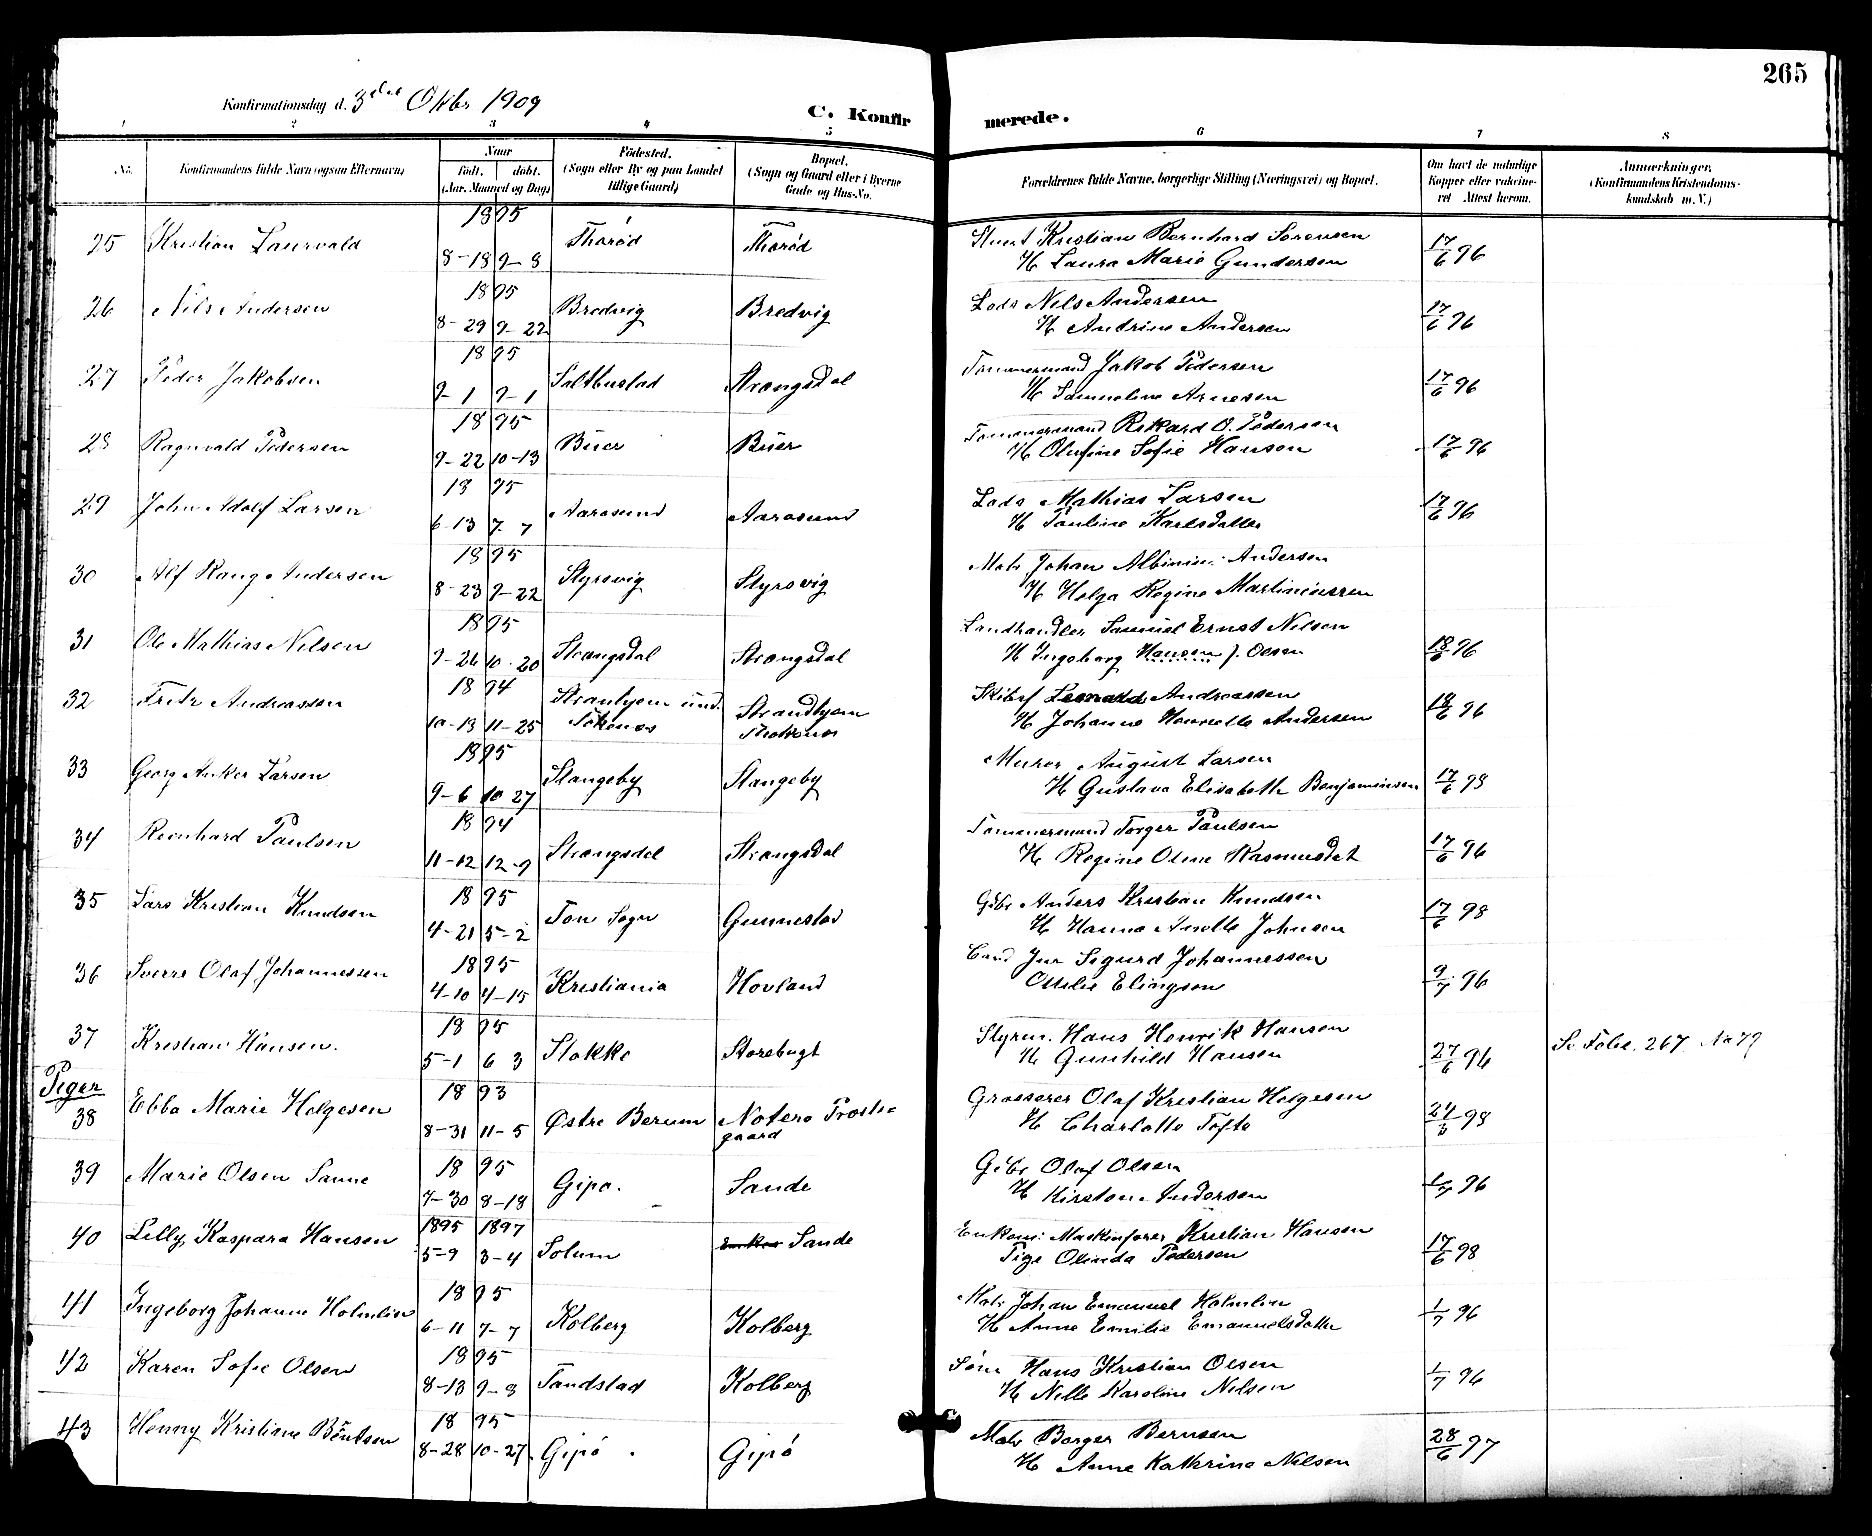 265
Konfirmationsdag d. 3die Oktbr 1909
C. Konfirmerede.
1 2 3 4 5 6 7 8
No.
Konfirmandens fulde Navn (ogsaa Efternavn)
Naar
født. døbt.
(Aar, Maaned og Dag)
Fødested.
(Sogn eller By og paa Landet
tillige Gaard)
Bopæl.
(Sogn og Gaard eller i Byerne
Gade og Hus-No.
Forældrenes fulde Navne, borgerlige Stilling (Næringsvei) og Bopæl.
Om havt de naturlige
Kopper eller vakcine-
ret Attest herom.
Anmærkninger.
(Konfirmandens Kristendoms-
kundskab m. V.)
25 Kristian Laurvald 1895 8-18 9-8 Thorød Thorød Kristian Bernhard Sørensen
H Laura Marie Gundersen 17/6 96
26 Nils Andersen 1895 8-29 9-22 Bredvig Bredvig Lods Nils Andersen
H Andrine Andersen 17/6 96
27 Peder Jakobsen 1895 9-1 9-1 Salthustad Strengsdal Tømmermand Jakob Pedersen
H Samueline Arnesen 17/6 96
28 Ragnvald Pedersen 1895 9-22 10-13 Buer Buer Tømmermand Rikard O. Pedersen
H Olufine Sofie Hansen 17/6 96
29 John Adolf Larsen 1895 6-13 7-7 Aarøsund Aarøsund Lods Mathias Larsen
H Pauline Karlsdatter 17/6 96
30 Alf Rang Andersen 1895 8-23 9-22 Styrsvig Styrsvig Matr Johan Albinius Andersen
H Helga Regine Martiniussen
31 Ole Mathias Nilsen 1895 9-26 10-20 Strengsdal Strengsdal Landhandler Samuel Ernst Nilsen
H Ingeborg Hansen f. Olsen 18/6 96
32 Fritz Andreassen 1894 10-13 11-25 Stranhjem und.
Tokenes Strandhjem
Skibsf Leonard Andreassen
H Johanne Henriette Andersen 18/6 96
33 Georg Anker Larsen 1895 9-6 10-27 Stangeby Stangeby Murer August Larsen
H Gustava Elisabeth Benjaminsen 17/6 98
34 Reinhard Paulsen 1894 11-12 12-9 Strengsdal Strengsdal Tømmermand Torger Paulsen
H Regine Oline Rasmusdat 17/6 96
35 Lars Kristian Knudsen 1895 4-21 5-2 Ton Sogn Gunnestad Gbr Anders Kristian Knudsen
H Hanna Anette Johnsen 17/6 98
36 Sverre Olaf Johannessen 1895 4-10 4-15 Kristiania Hovland Cand Jur Sigurd Johannessen
Ottilie Elingsen 9/7 96
37 Kristian Hansen. 1895 5-1 6 3 Stokke Storebugt Styrm. Hans Henrik Hansen
H Gunhild Hansen 27/6 96 Se Folie. 267. No 79
Piger
38 Ebba Marie Helgesen 1893 8-31 11-5 Østre Berum Nøterø Præste-
gaard Grosserer Olaf Kristian Helgesen
H Charlotte Tofte 98
39 Marie Olsen Sanne 1895 7-30 8-18 Gipø. Sande Gbr Olaf Olsen
H Kirsten Andersen 1/7 96
40 Lilly Kaspara Hansen 1895 1897 5-9 3-4 Solum Sande Enkem: Maskinfører Kristian Hansen
Pige Olinda Pedersen 17/6 98
41 Ingeborg Johanne Holmlin 1895 6-11 7-7 Kolberg Kolberg Matr Johan Emanuel Holmlin
H Anne Emilie Emanuelsdatter 1/7 96
42 Karen Sofie Olsen 1895 8-13 9-8 Tandstad Kolberg Søm Hans Kristian Olsen
H Nille Karoline Nilsen 1/7 96
43 Henny Kristiane Bérntsen 1895 8-28 10-27 Gipø. Gipø Matr Borger Bernsen
H Anne Kathrine Nilsen 28/6 97